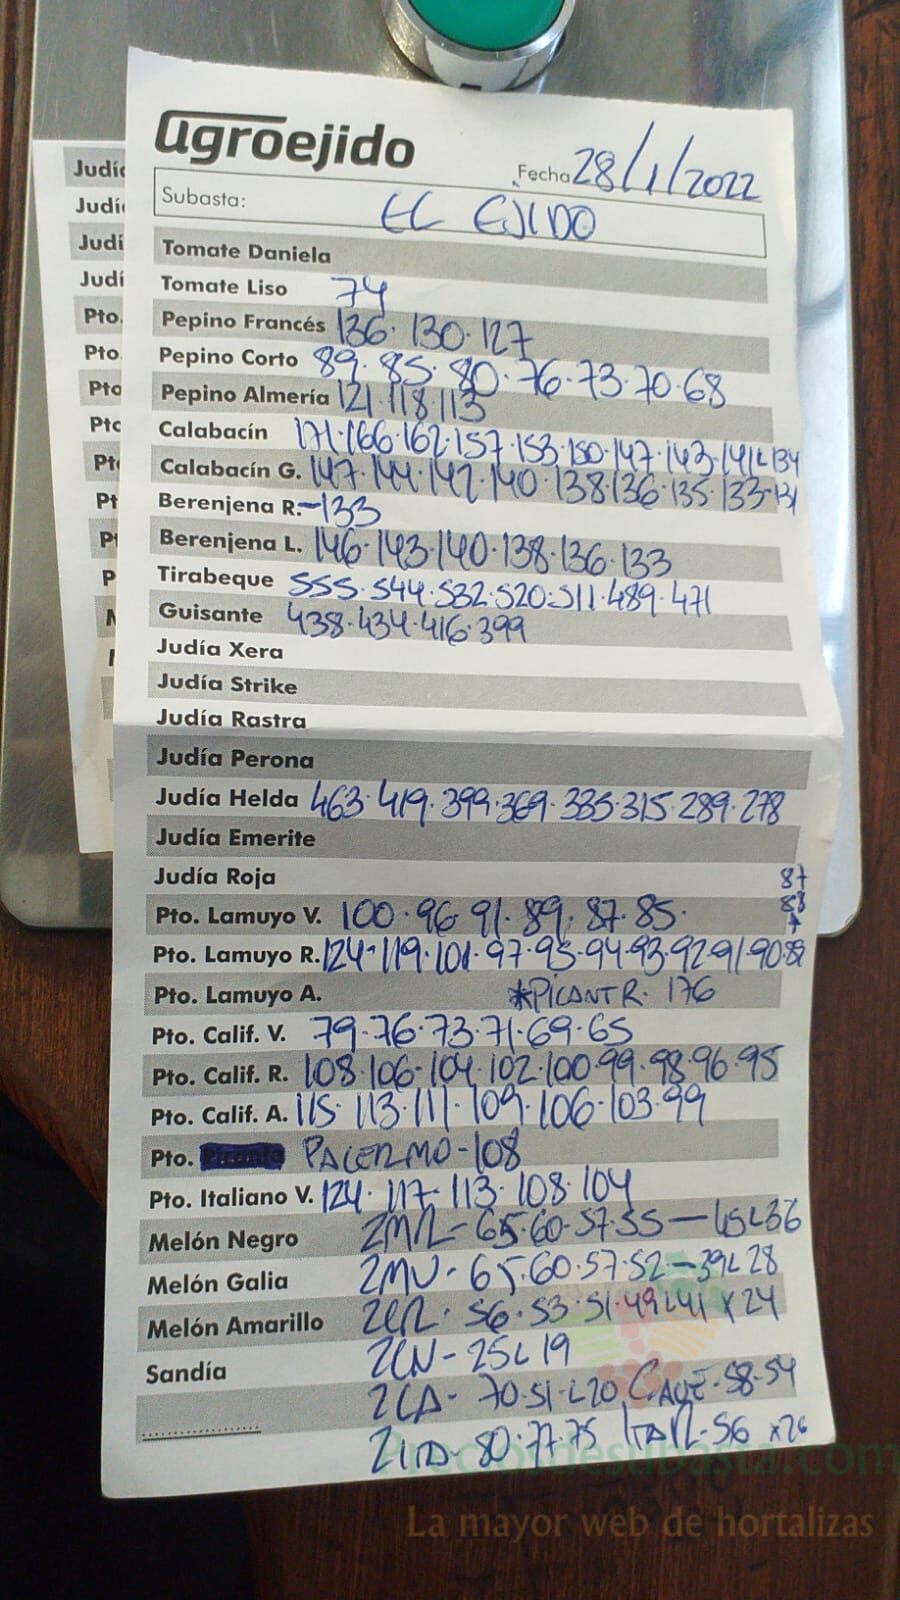 agroejido
Fecha 28/1/2022
Subasta: EL EJIDO
Tomate Daniela
Tomate Liso 74
Pepino Francés 136. 130. 127
Pepino Corto 89. 85. 80. 76. 73. 70. 68
Pepino Almería 121. 118. 113
Calabacín 171. 166. 162. 157. 153. 150. 147. 143. 141L 134
Calabacín G. 147. 144. 142. 140. 138. 136. 135. 133-131
Berenjena R. -133
Berenjena L. 146. 143. 140. 138. 136. 133
Tirabeque 555. 544. 532. 520. 511. 489. 471
Guisante 438. 434. 416. 399
Judía Xera
Judía Strike
Judía Rastra
Judía Perona
Judía Helda 463. 419. 399. 369. 335. 315. 289. 278
Judía Emerite
Judía Roja 87
Pto. Lamuyo V. 100. 96. 91. 89. 87. 85. 88
Pto. Lamuyo R. 124-119. 101. 97. 95. 94. 93. 92. 91. 90. 89
Pto. Lamuyo A. *PICANT R. 176
Pto. Calif. V. 79. 76. 73. 71. 69. 65
Pto. Calif. R. 108. 106. 104. 102. 100. 99. 98. 96. 95
Pto. Calif. A. 115. 113. 111. 109. 106. 103. 99
Pto. PALERMO-108
Pto. Italiano V. 124. 117. 113. 108. 104
Melón Negro 2M/R- 65. 60. 57. 55 — 45L36
Melón Galia 2MV- 65. 60. 57. 52 - 39L 28
Melón Amarillo 2CR. 56. 53. 51. 49L41 x 24
Sandía 2CN- 25L19
2CA- 70. 51. L20 58. 54
80. 77. 75 56 x26
Preciosdesubasta.com
La mayor web de hortalizas
Judí
Judí
Judí
Judí
Pto.
Pto.
Pto
Pto
Pt
Pt
P
P